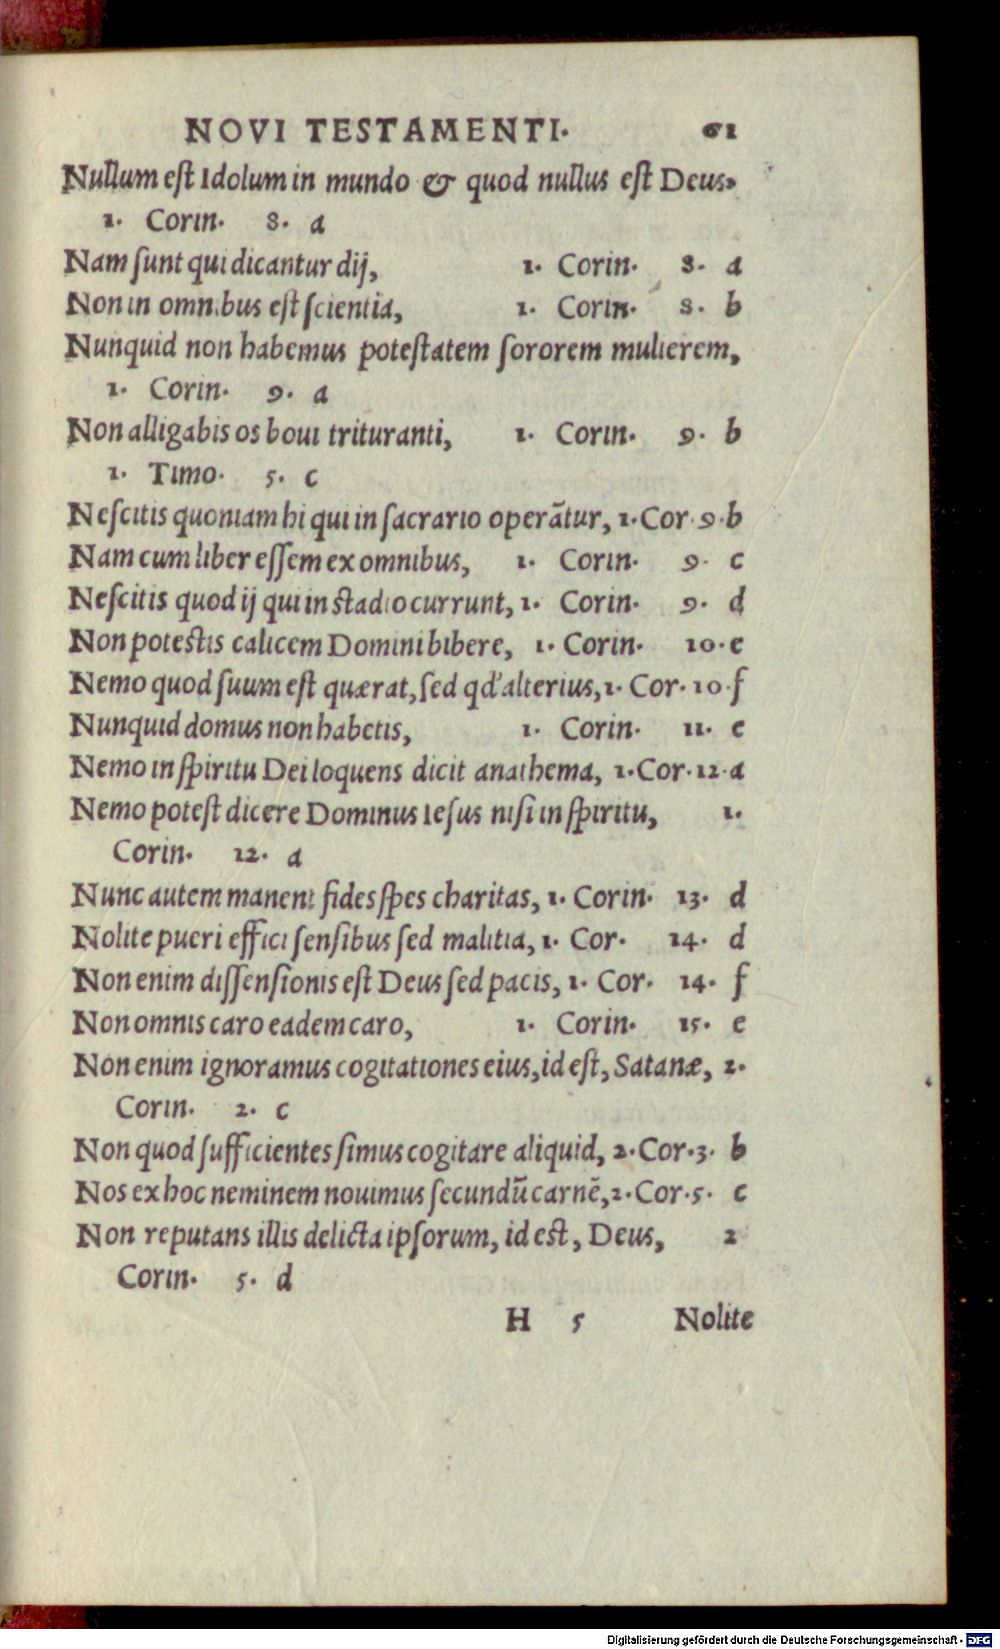 NOVI TESTAMENTI. 61
Nullum eſt Idolum in mundo & quod nullus eſt Deus,
1. Corin. 8. a
Nam ſunt qui dicantur dij, 1. Corin. 8. a
Non in omnibus eſt ſcientia, 1. Corin. 8. b
Nunquid non habemus poteſtatem ſororem mulierem,
1. Corin. 9. a
Non alligabis os boui trituranti, 1. Corin. 9. b
1. Timo. 5. c
Neſcitis quoniam hi qui in ſacrario operãtur, 1. Cor. 9. b
Nam cum liber eſſem ex omnibus, 1. Corin. 9. c
Neſcitis quod ij qui in ſtadio currunt, 1. Corin. 9. d
Non poteſtis calicem Domini bibere, 1. Corin. 10. e
Nemo quod ſuum eſt quærat, ſed qd' alterius, 1. Cor. 10. f
Nunquid domus non habetis, 1. Corin. 11. e
Nemo in ſpiritu Dei loquens dicit anathema, 1. Cor. 12. a
Nemo poteſt dicere Dominus Ieſus niſi in ſpiritu, 1.
Corin. 12. a
Nunc autem manent fides ſpes charitas, 1. Corin. 13. d
Nolite pueri effici ſenſibus ſed malitia, 1. Cor. 14. d
Non enim diſſenſionis eſt Deus ſed pacis, 1. Cor. 14. f
Non omnis caro eadem caro, 1. Corin. 15. e
Non enim ignoramus cogitationes eius, id eſt, Satanæ, 2.
Corin. 2. c
Non quod ſufficientes ſimus cogitare aliquid, 2. Cor. 3. b
Nos ex hoc neminem nouimus ſecundũ carnẽ, 2. Cor. 5. c
Non reputans illis delicta ipſorum, id eſt, Deus, 2
Corin. 5. d
H 5 Nolite
Digitalisierung gefördert durch die Deutsche Forschungsgemeinschaft - DFG